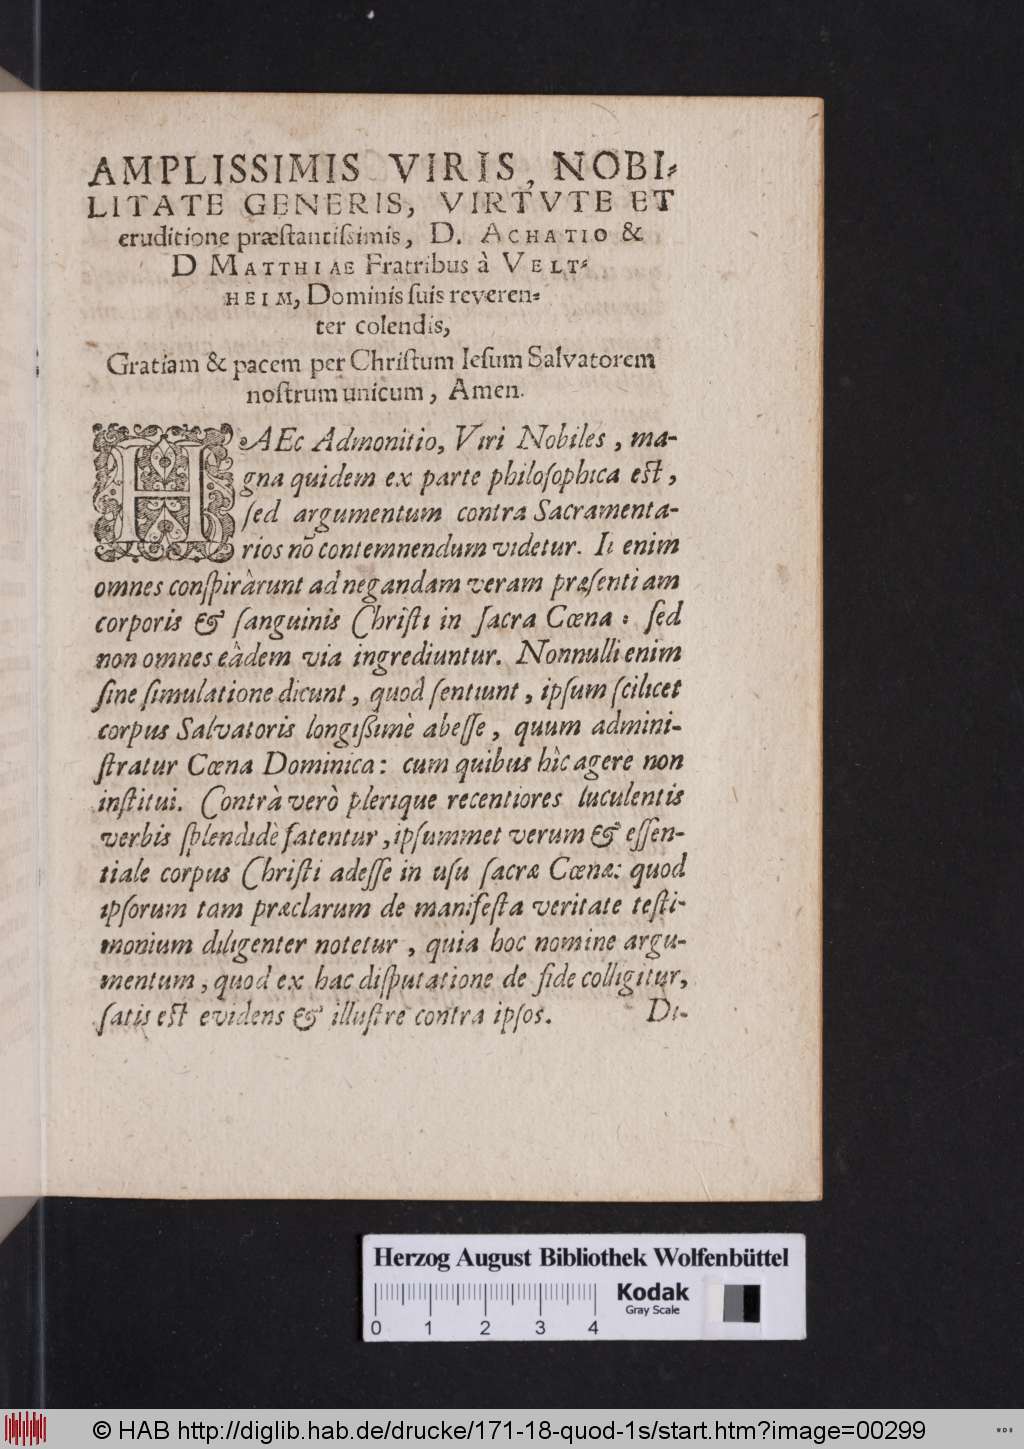 AMPLISSIMIS VIRIS, NOBI-
LITATE GENERIS, VIRTVTE ET
eruditione præſtantiſsimis, D. ACHATIO &
D MATTHIAE Fratribus à VELT-
HEIM, Dominis ſuis reveren-
ter colendis,
Gratiam & pacem per Chriſtum Ieſum Salvatorem
noſtrum unicum, Amen.
HAEc Admonitio, Viri Nobiles, ma-
gna quidem ex parte philoſophica eſt,
ſed argumentum contra Sacramenta-
rios nõ contemnendum videtur. Ii enim
omnes conſpiràrunt ad negandam veram præſentiam
corporis & ſanguinis Chriſti in ſacra Cœna: ſed
non omnes eâdem via ingrediuntur. Nonnulli enim
ſine ſimulatione dicunt, quod ſentiunt, ipſum ſcilicet
corpus Salvatoris longiſsimè abeſſe, quum admini-
ſtratur Cœna Dominica: cum quibus hîc agere non
inſtitui. Contrà verò plerique recentiores luculentis
verbis ſplendidè fatentur, ipſummet verum & eſſen-
tiale corpus Chriſti adeſſe in uſu ſacræ Cœnæ: quod
ipſorum tam præclarum de manifeſta veritate teſti-
monium diligenter notetur, quia hoc nomine argu-
mentum, quod ex hac diſputatione de fide colligitur,
ſatis eſt evidens & illuſtre contra ipſos.
Di-
Herzog August Bibliothek Wolfenbüttel
Kodak
Gray Scale
0 1 2 3 4
© HAB http://diglib.hab.de/drucke/171-18-quod-1s/start.htm?image=00299